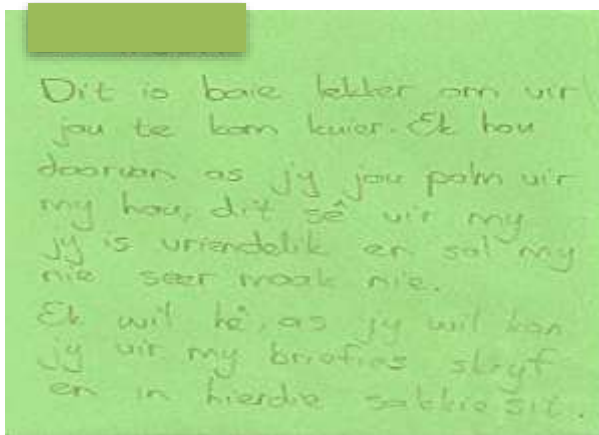 Dit is baie lekker om vir
jou te kom kuier. Ek hou
daarvan as jy jou palm vir
my hou, dit sê vir my
jy is vriendelik en sal my
nie seer maak nie.
Ek wil hê, as jy wil kan
jy vir my briefies skryf
en in hierdie sakkie sit.